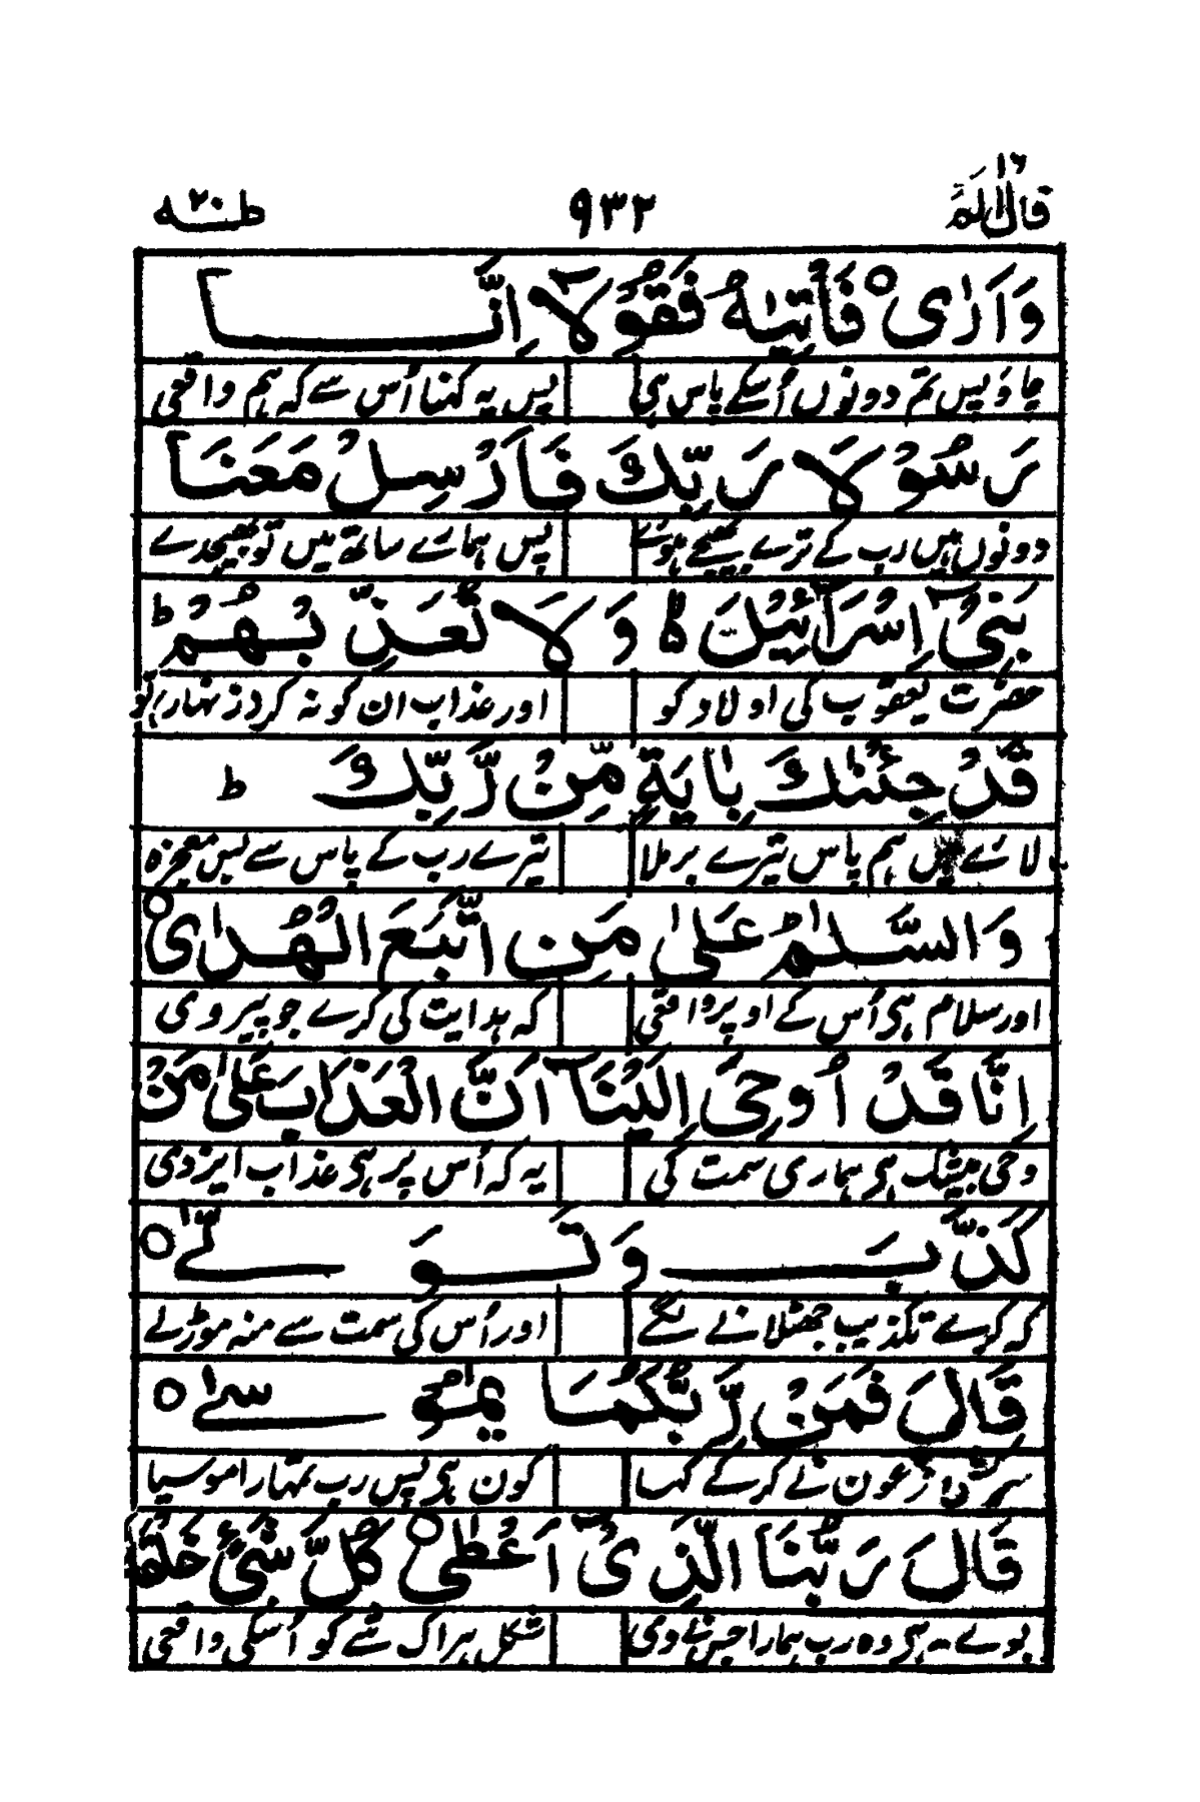 قال الم ١٦ ٩٣٢ طٰهٰ ٢٠
وَاَرٰى ○ فَاْتِيٰهُ فَقُوْلَاۤ اِنَّا
جاؤ پس تم دونوں اُسکے پاس ہی پس یہ کہنا اُس سے کہ ہم واقعی
رَسُوْلَا رَبِّكَ فَاَرْسِلْ مَعَنَا
دونوں ہیں رب کے ترے بھیجے ہوئے پس ہمارے ساتھ میں تو بھیجدے
بَنِيْۤ اِسْرَآئِيْلَ ۙ وَلَا تُعَذِّبْهُمْ ؕ
حضرت یعقوب کی اولاد کو اور عذاب ان کو نہ کر دنہار تو
قَدْ جِئْنٰكَ بِاٰيَةٍ مِّنْ رَّبِّكَ ؕ
لائے ہیں ہم پاس تیرے برملا تیرے رب کے پاس سے بس معجزہ
وَالسَّلٰمُ عَلٰى مَنِ اتَّبَعَ الْهُدٰى ○
اور سلام ہی اُس کے اوپر واقعی کہ ہدایت کی کرے جو پیروی
اِنَّا قَدْ اُوْحِيَ اِلَيْنَاۤ اَنَّ الْعَذَابَ عَلٰى مَنْ
وحی بیشک ہی ہماری سمت کی یہ کہ اُس پر ہی عذاب ایزدی
كَذَّبَ وَتَوَلّٰى ○
کہ کرے تکذیب جھٹلانے لگے اور اُس کی سمت سے منہ موڑلے
قَالَ فَمَنْ رَّبُّكُمَا يٰمُوْسٰى ○
فرعون نے کرکے کہا کون ہی پس رب تمہارا موسیا
قَالَ رَبُّنَا الَّذِيْۤ اَعْطٰى ○ كُلَّ شَيْءٍ خَلْقَهٗ
بولے یہ ہی وہ رب ہمارا جس نے دی شکل ہر اک شے کو اُسکی واقعی